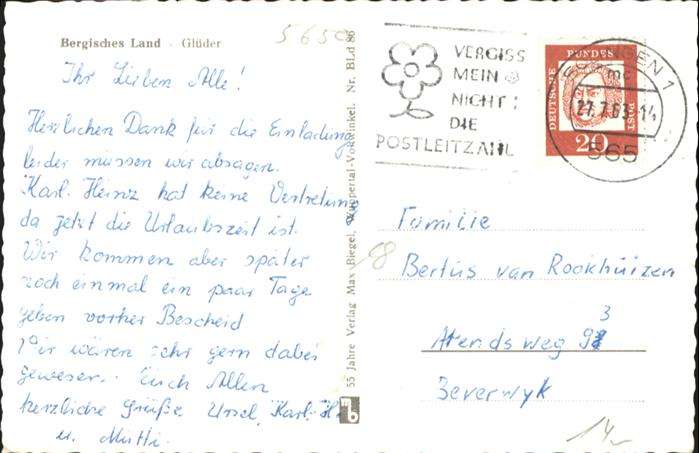 Bergisches Land - Glüder
565
Ihr Lieben Alle!
Herzlichen Dank für die Einladung
leider müssen wir absagen.
Karl-Heinz hat keine Vertretung
da jetzt die Urlaubszeit ist.
Wir kommen aber später
noch einmal ein paar Tage
geben vorher Bescheid
Wir wären sehr gern dabei
gewesen. Euch Allen
herzliche Grüße Ursel, Karl-H.
u. Mutti.
55 Jahre Verlag Max Biegel, Wuppertal-Vohwinkel. Nr. BLd 86
VERGISS
MEIN
NICHT:
DIE
POSTLEITZAHL
DEUTSCHE BUNDESPOST
20
INGEN 1
mc
27.7.63-14
565
Familie
Bertus van Rookhuizen
3
Arends weg 9
Beverwyk
14,-